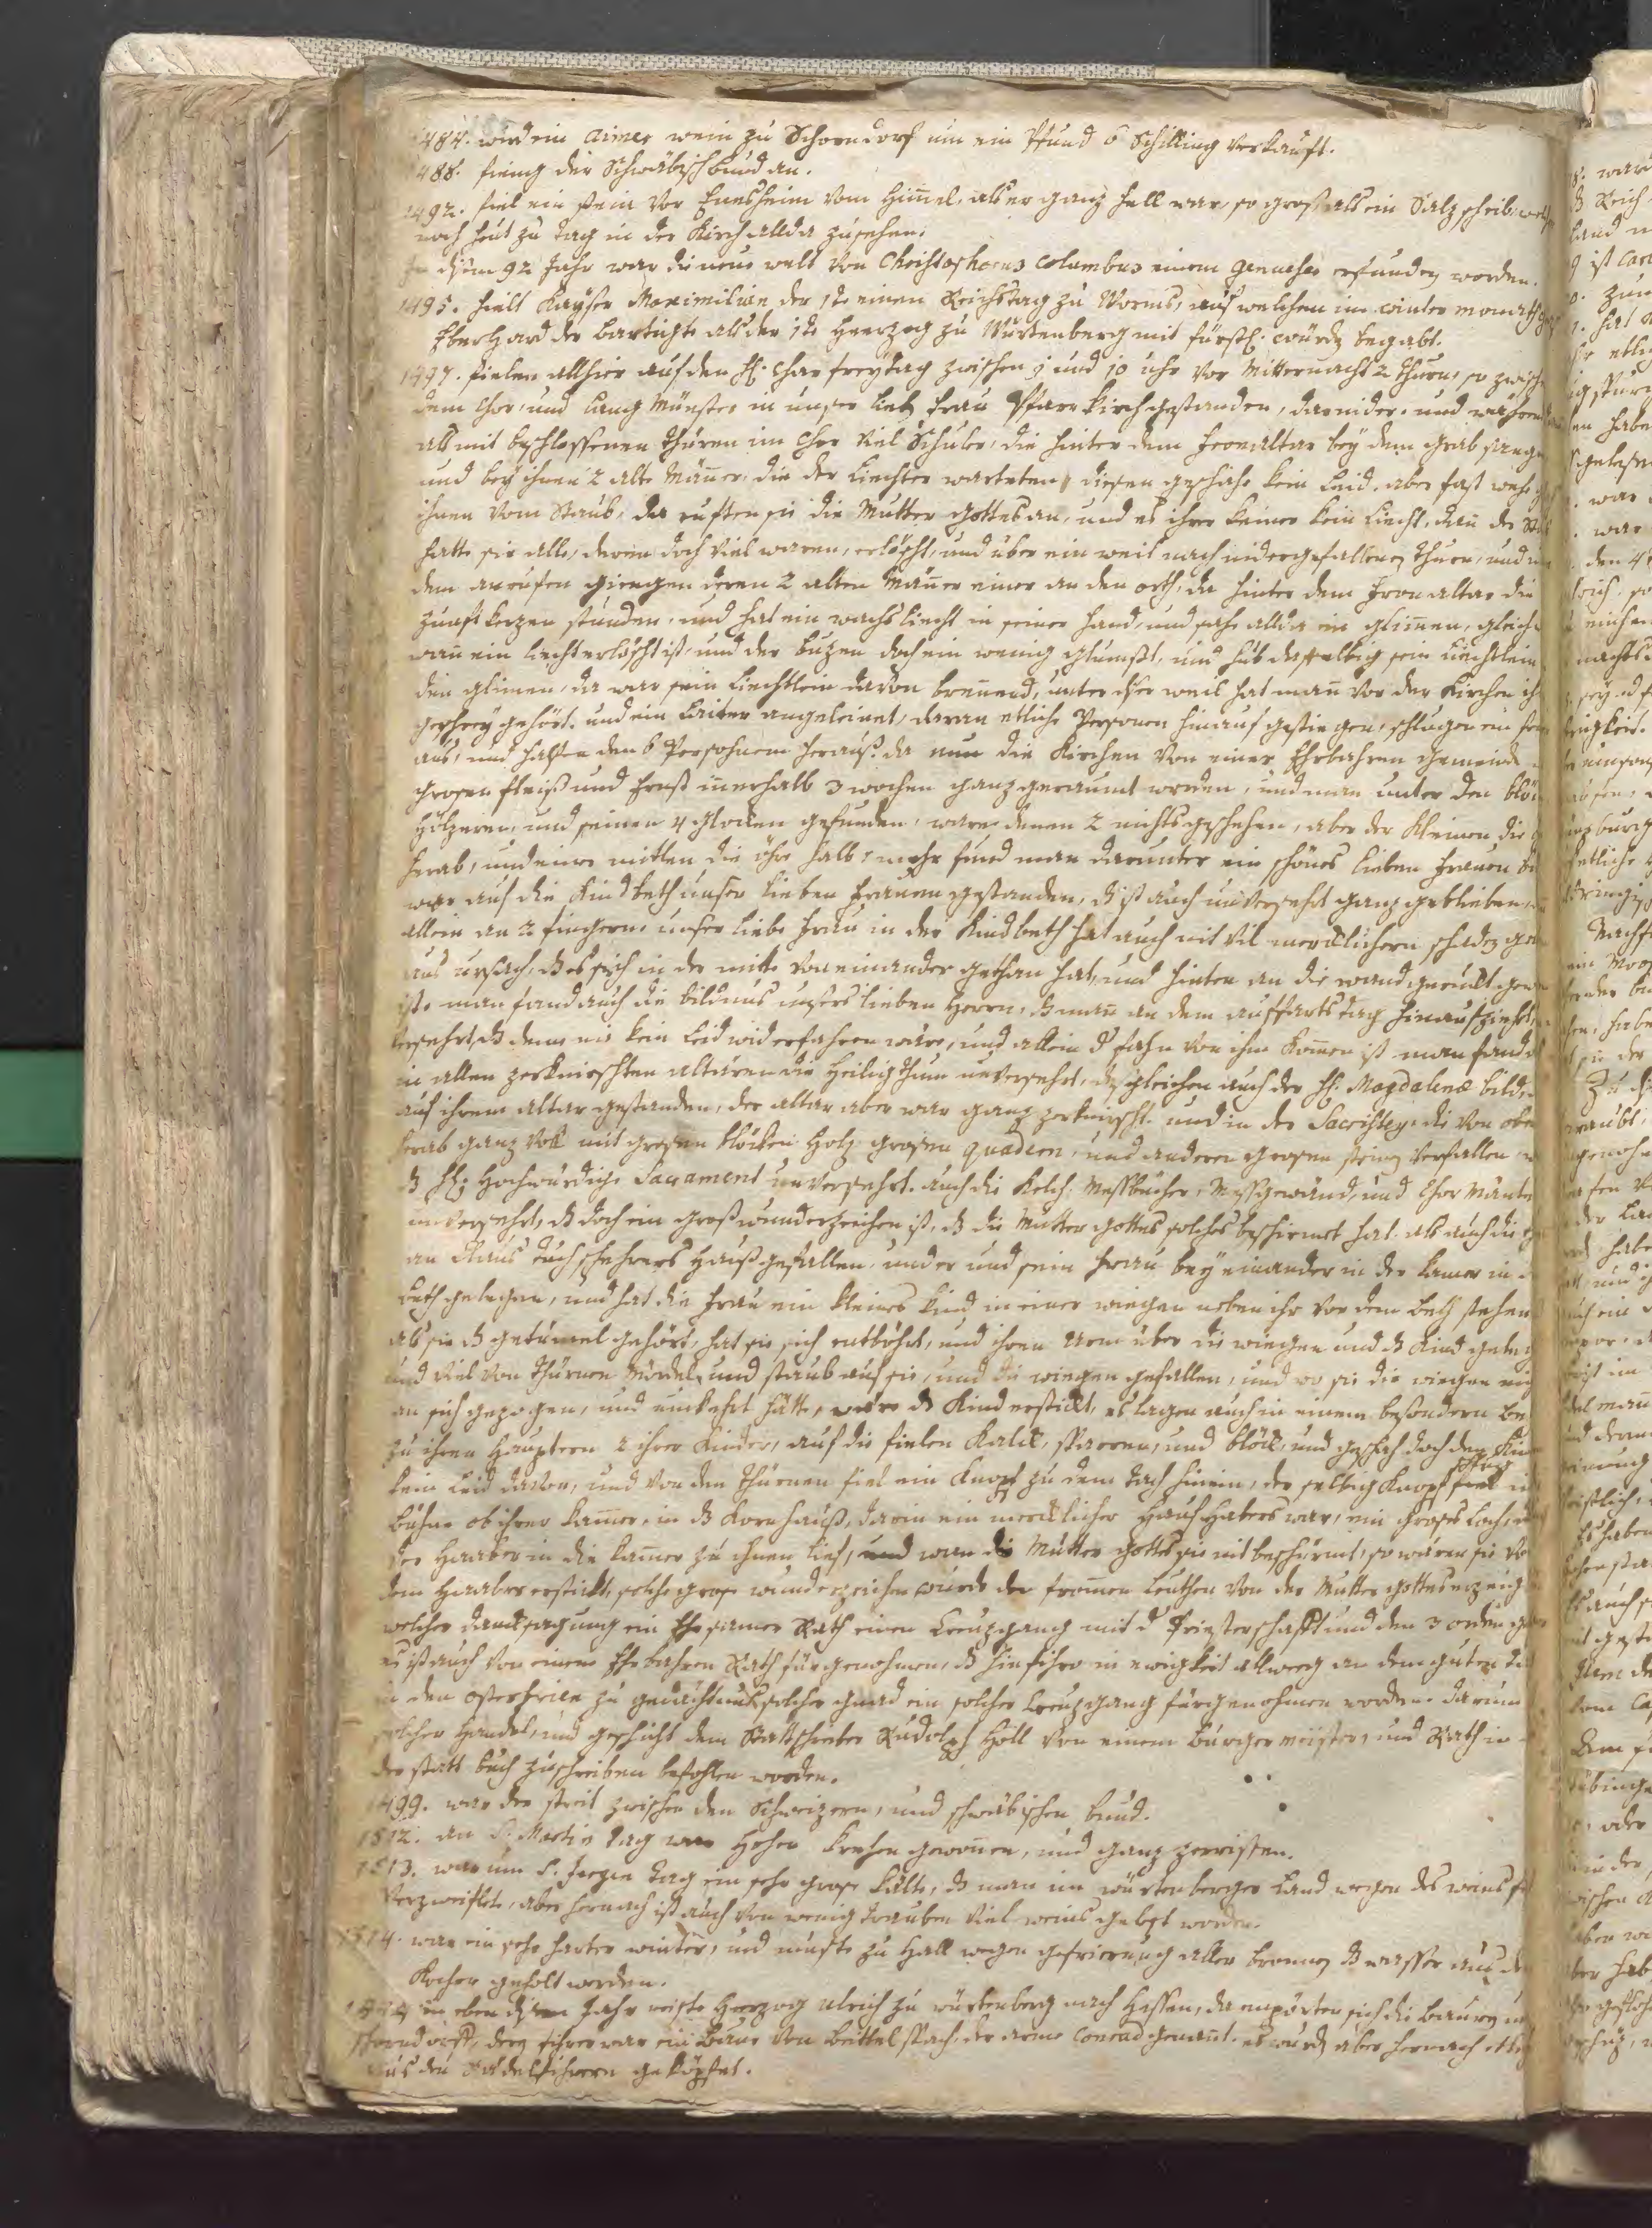 1484. wird ein aimer wein zu Schorndorf um ein Pfund 6 Schilling verkauft.
1488. fieng der Schwäbisch bund an.
1492. fiel ein stein vor Ensheim vom Himel, als er ganz hell war, so groß als ein Salz scheib, welch
noch heut zu tag in der Kirch allda zusehen.
In disem 92 Jahr war die neue welt von Christophorus Columbus einem genueser erfunden worden.
1495. hielt Kayser Maximilian der 1te einen Reichstag zu Worms, auf welchem im winter monath
Eberhard der bartigte als der 1te Herzog zu Würtenberg mit fürstl. würde begabt.
1497. fielen allhier auf den H. Charfreytag zwischen 9 und 10 uhr vor Mitternacht 2 thurn, so zwischen
dem Chor, und Lang Münster in unser lieb frau Pfarr kirch gestanden, darnider. und waren
als mit beschlossenen thüren im Chor viel Schuler, die hinter dem fronaltar bey dem grab sangen
und bey ihnen 2 alte Mäner, die der liechter warteten, disen geschahe kein leid, aber fast wehe
ihnen vom Staub, da rufften sie die Mutter gottes an, und es ihrer keiner kein liecht, dan der Staub
hatte sie alle, deren doch viel waren, erlöscht, und über ein weil nach nidergefallenen thurn, und
dem anrufen giengen deren 2 alten Mäner einer an den orth, da hinter dem fronaltar die
zunft kerzen stunden, und hat ein wachs liecht in seiner hand, und sahe allda ein glimen, gleich
wan ein liecht erlöscht ist, und der buzen doch ein wenig glumset, und hub dasselbig sein liechtlein
den glimen, da war sein liechtlein davon brenend, unter diser weil hat man vor der Kirchen ihr
geschrey gehört. und ein Laiter angeleinet, daran etliche Personen hinauf gestiegen, schlugen ein
aus, und halfen den 6 Persohnen herauß. da nun die Kirchen von einer Ehrbahren gemeinde
grosen fleiß und Ernst innerhalb 3 wochen ganz geraumt worden, und man unter den
hölzeren, und steinen 4 glocken gefunden, waren denen 2 nichts geschehen, aber der kleinen die
herab, und einer mitlen die öhr halb. mehr fund man darunter ein schönes lieben frauen
war auf die Kindbeth unser lieben frauen gestanden, ist auch unversehrt ganz geblieben
allein an 2 fingern. unser liebe frau in der Kindbeth hat auch nit vil mercklichern schaden
aus ursach, daß es sich in der mitte von einander gethan hat, und hinten an die wand geruckt
ist. man fand auch die bildnus unsers lieben Herrn, man an dem auffarts tag hinaufziehet
versehrt, daß deme nie kein leid widerfahren wäre, und allein der fahn von ihm komen ist. man fand
in allen zerknirschten altären die Heiligthum unversehrt, desgleichen auch der H. Magdalenæ bild,
auf ihrem altar gestanden, der altar aber war ganz zerknirscht. und in der Sacristey, die von oben
herab ganz voll mit grosen blöcken holz grosen quadern, und anderen grosen steinen verfallen
H. Hochwürdige Sacrament unversehrt. auch die Kelch, Messbücher, Messgewand, und Chor Mäntel
unversehrt, doch ein groß wunderzeichen ist, die Mutter gottes solches beschirmet hat. als auch die
an Claus tuch scherers Hauß gefallen, und er und sein frau bey einander in der kamer in
beth gelegen, und hat die frau ein kleines kind in einer wiegen neben ihr vor dem beth stehen
als sie getümel gehört, hat sie sich entböhrt, und ihren arm über die wiegen und Kind gelegt
und viel von thurnen Mördel, und staub auf sie, und die wiegen gefallen, und wo sie die wiegen nit
an sich gezogen, und umkehrt hätte, wäre Kind erstickt, es lagen auch in einem besondern
zu ihren häuptern 2 ihrer Kinder, auf die fielen Kalck, sparren, und blöck, und geschah doch den
kein leid davon, und von den thurnen fiel ein Knopf zu dem tach hinein, der selbig Knopf
bühne ob ihrer kamer, in Kornhauß, darin ein mercklicher Hauf Habers war, ein groses loch,
der Haaber in die kamer zu ihnen lief, und wan die Mutter gottes sie nit beschirmt, so wären sie
dem Haaber erstickt, solche grose wunderzeichen wurde den fromen leuthen von der Mutter gottes erzeigt
welcher dancksagung ein Ehrsamer Rath einen Creuzgang mit der Priesterschafft und den 3 orden
es ist auch von einem Ehrbahren Rath fürgenohmen, hinführo in ewigkeit allweeg an dem guten
in den osterfeiren zu gedächtnuß solcher gnad ein solcher Creuzgang fürgenohmen worden. darum
solcher Handel, und geschicht dem Stattschreiber Rudolph Holl von einem Burgermeister, und Rath in
der statt buch zuschreiben befohlen worden.
1499. war der streit zwischen den Schweizern, und schwäbischen bund.
1512. an S. Martin tag war Hohen Krehen gewonen, und ganz zerrissen.
1513. war um S. Jergen tag ein sehr grose kälte, man im würtenberger Land wegen des weins
verzweiflet, aber hernach ist auch von wenig trauben viel weins gelest worden.
1514. war ein sehr harter winter, und muste zu Hall wegen gefrierung aller bronnen wasser aus dem
Kocher geholt werden.
1514 in eben disem Jahr reiste Herzog ulrich zu würtenberg nach Hessen, da empörten sich die bauren
schorndorff, deren führer war ein Baur von Beittelspach, der arme Conrad genant. es wurden aber hernach
aus den Rädelführern geköpfet.